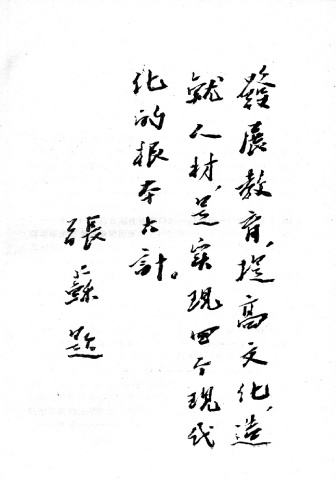 發展教育,提高文化,造
就人材,是实現四个現代
化的根本大計。
張蘇題